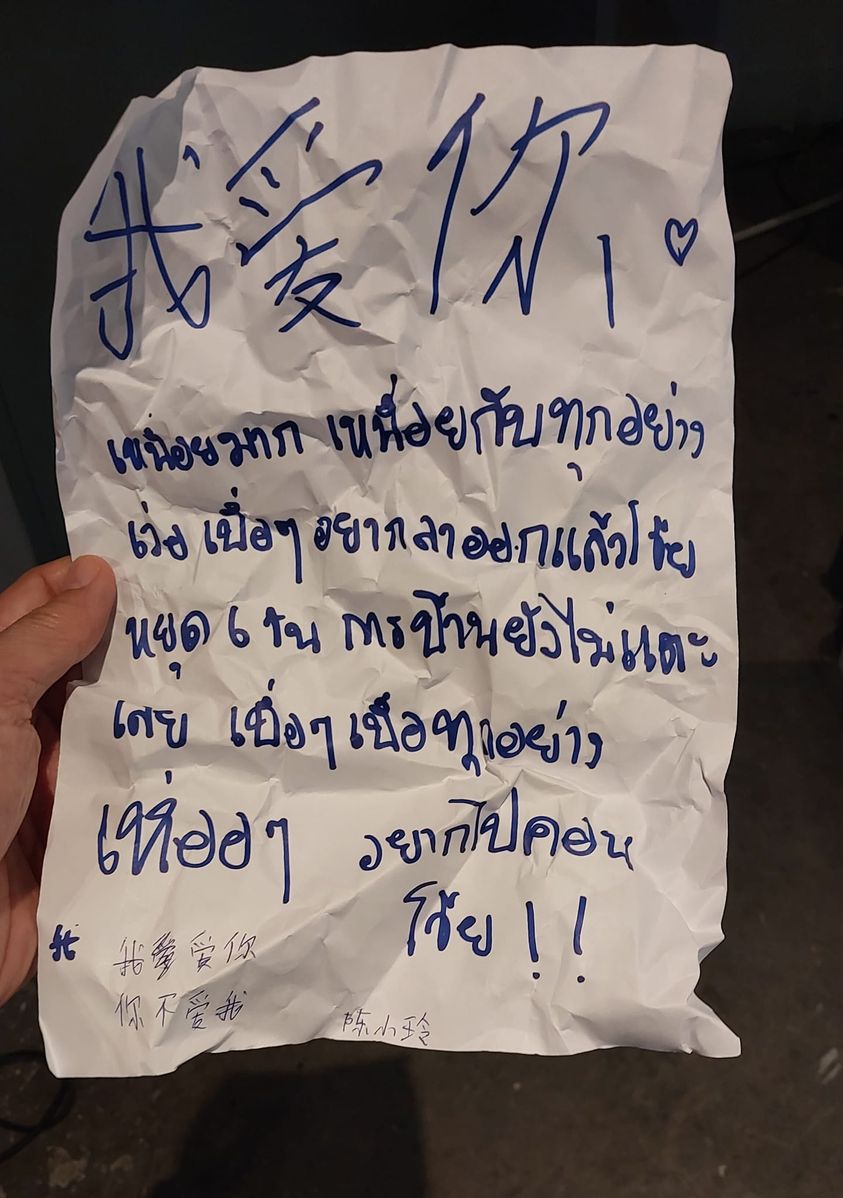 我爱你, ♡
เหนื่อยมาก เหนื่อยกับทุกอย่าง
เว่อ เบื่อๆ อยากลาออกแล้วโว้ย
หยุด 6 วัน การบ้านยังไม่แตะ
เลย เบื่อๆ เบื่อทุกอย่าง
เห่ออๆ อยากไปคอน
โว้ย!!
我爱爱你
你不爱我
陈小玲